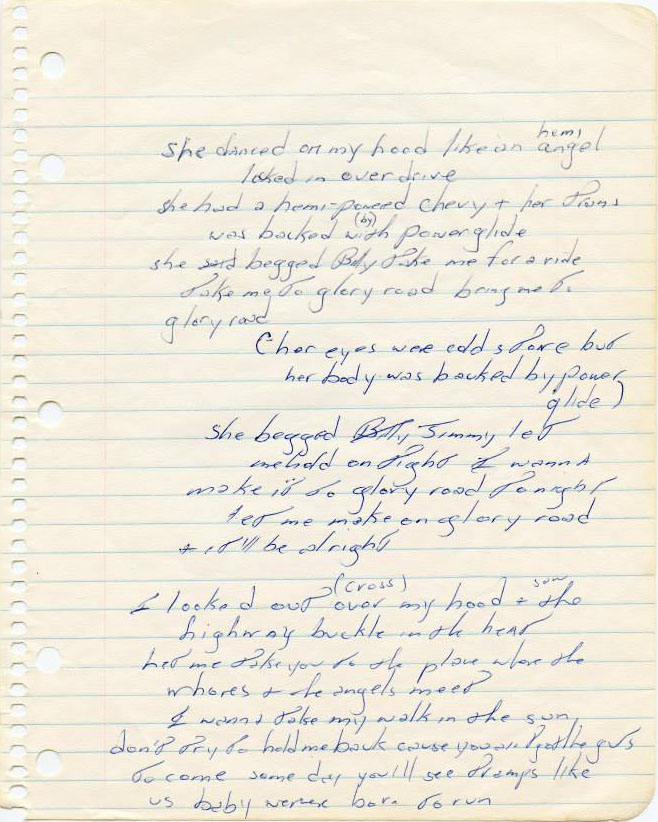 hemi
she danced on my hood like an angel
locked in overdrive
she had a hemi-powered chevy + her
(by)
was backed with powerglide
she said begged Billy take me for a ride
take me to glory road bring me to
glory road
(her eyes were cold stone but
her body was backed by power
glide)
she begged Billy Jimmy let
me hold on tight I wanna
make it to glory road tonight
let me make on glory road
+ it'll be alright
(cross) saw
I looked out over my hood + the
highway buckle in the heat
let me take you to the place where the
whores + the angels meet
I wanna take my walk in the sun
don't try to hold me back cause you ain't got the guts
to come some day you'll see tramps like
us baby were born to run